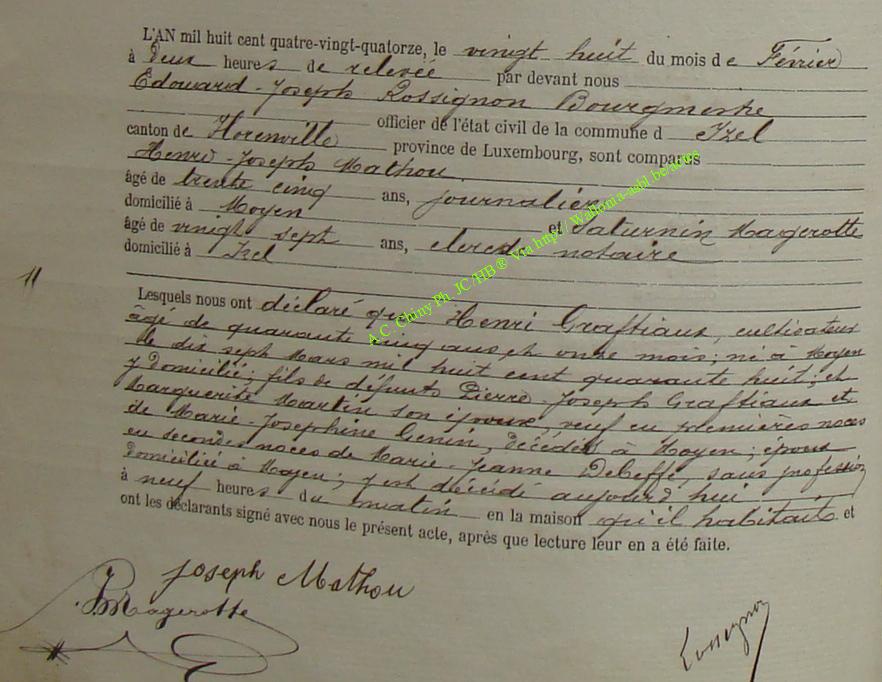 L'AN mil huit cent quatre-vingt-quatorze, le vingt huit du mois de Février
à deux heures de relevée par devant nous
Edouard-Joseph Rossignon Bourgmestre
officier de l'état civil de la commune d Izel
canton de Florenville province de Luxembourg, sont comparus
Henri-Joseph Mathou
âgé de trente cinq ans, journalier
domicilié à Moyen et Saturnin Magerotte
âgé de vingt sept ans, clerc de notaire
domicilié à Izel
11
Lesquels nous ont déclaré que Henri Graftiaux, cultivateur
âgé de quarante cinq ans et onze mois; né à Moyen
le dix sept Mars mil huit cent quarante huit; et
y domicilié; fils de défunts Pierre-Joseph Graftiaux et
Marguerite Martin son épouse, veuf en premières noces
de Marie-Josephine Genin, décédée à Moyen; époux
en secondes noces de Marie-Jeanne Debeffe, sans profession
domiciliée à Moyen; y est décédé aujourd'hui
à neuf heures du matin en la maison qu'il habitait et
ont les déclarants signé avec nous le présent acte, après que lecture leur en a été faite.
Joseph Mathou
Magerotte
Rossignon
A.C. Chiny Ph. JC/HB® Via http://Wallonia-asbl.be/actes